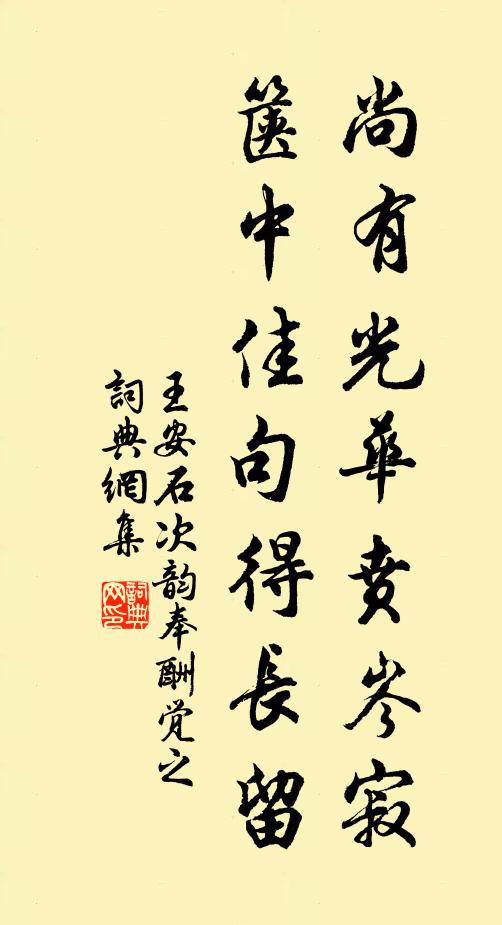 尚有光華賁岑寂
篋中佳句得長留
王安石次韵奉酬覚之
詞典網集
詞典網印